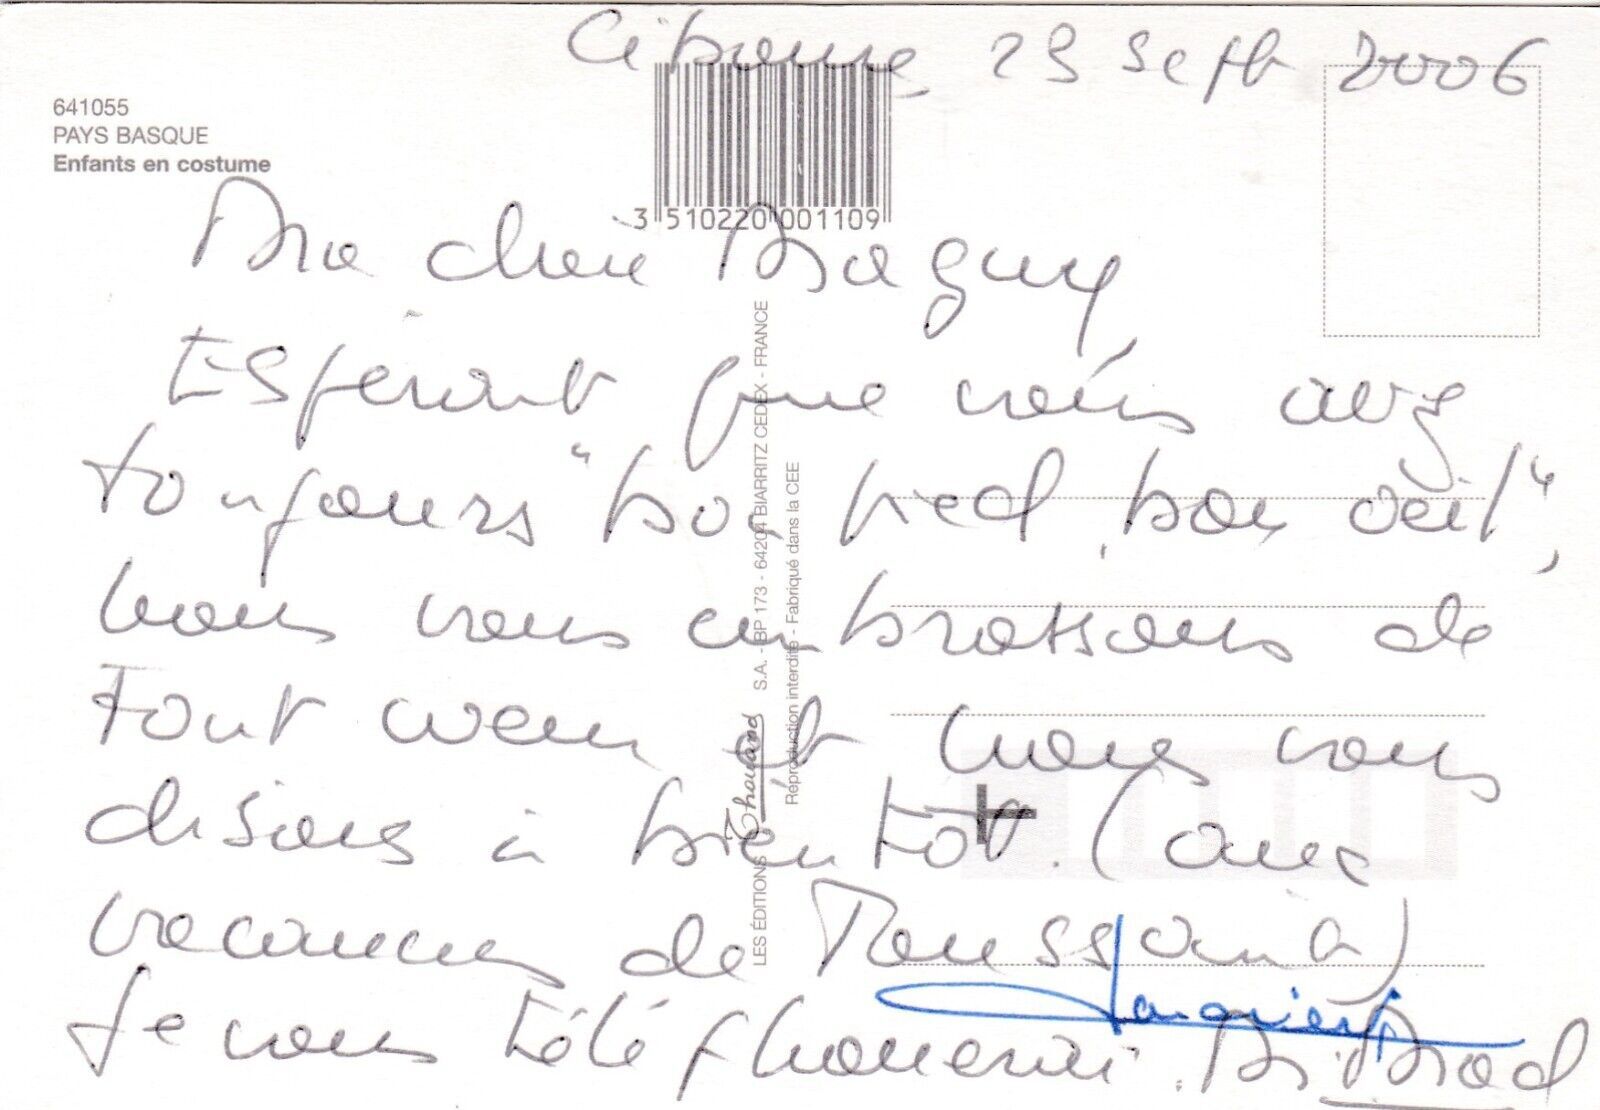 Ciboure 23 Sept 2006
641055
PAYS BASQUE
Enfants en costume
3 510220 001109
Ma chère Maguy,
Espérant que vous avez
toujours "bon pied, bon oeil",
nous vous embrassons de
Tout coeur et nous vous
disons à bientôt. (aux
vacances de Toussaint)
Je vous téléphonerai.
LES ÉDITIONS Thouand S.A. - BP 173 - 64204 BIARRITZ CEDEX - FRANCE
Reproduction interdite - Fabriqué dans la CEE